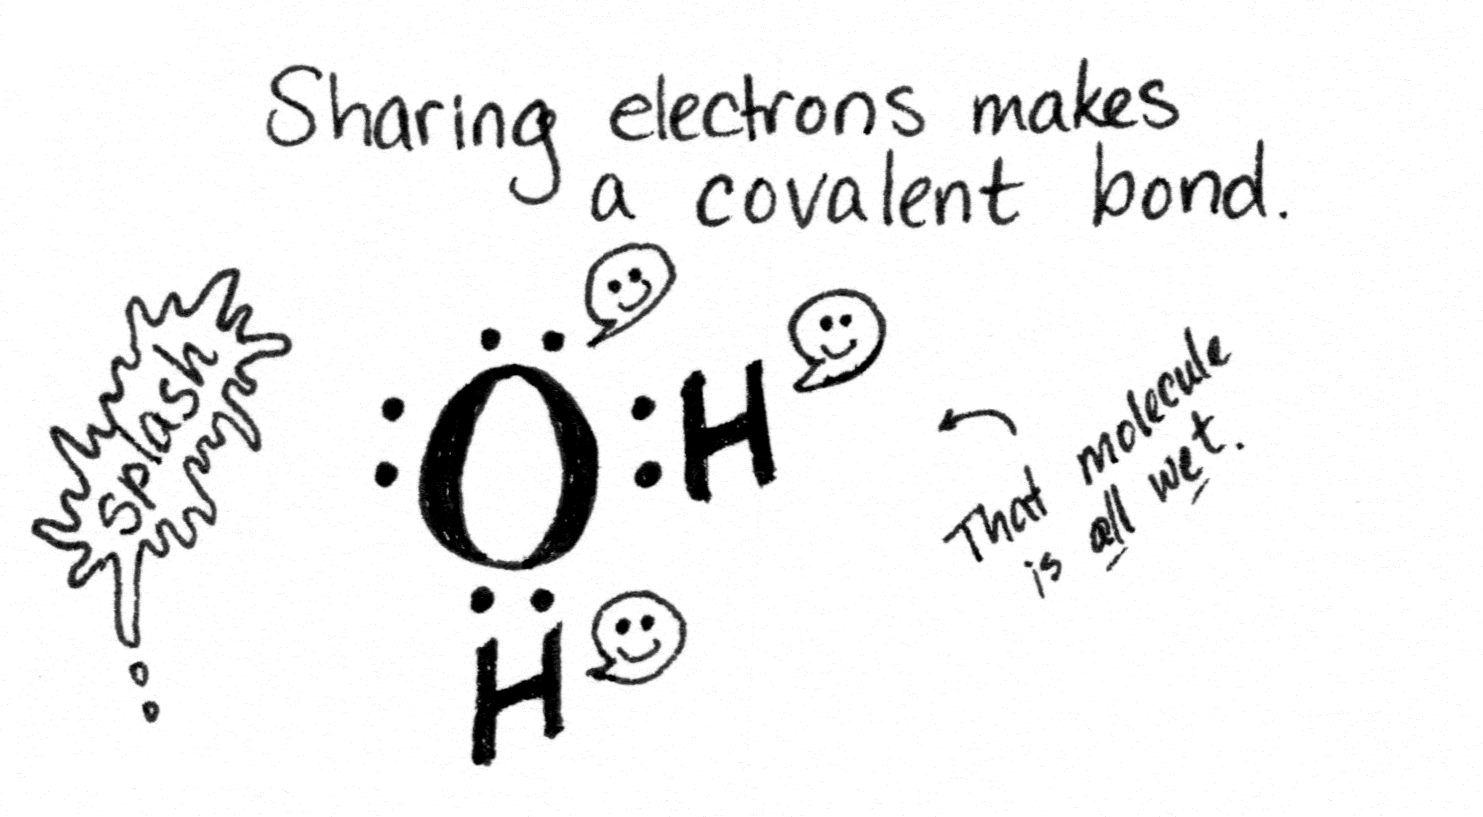 Sharing electrons makes
a covalent bond.
splash
O
H
H
That molecule
is all wet.